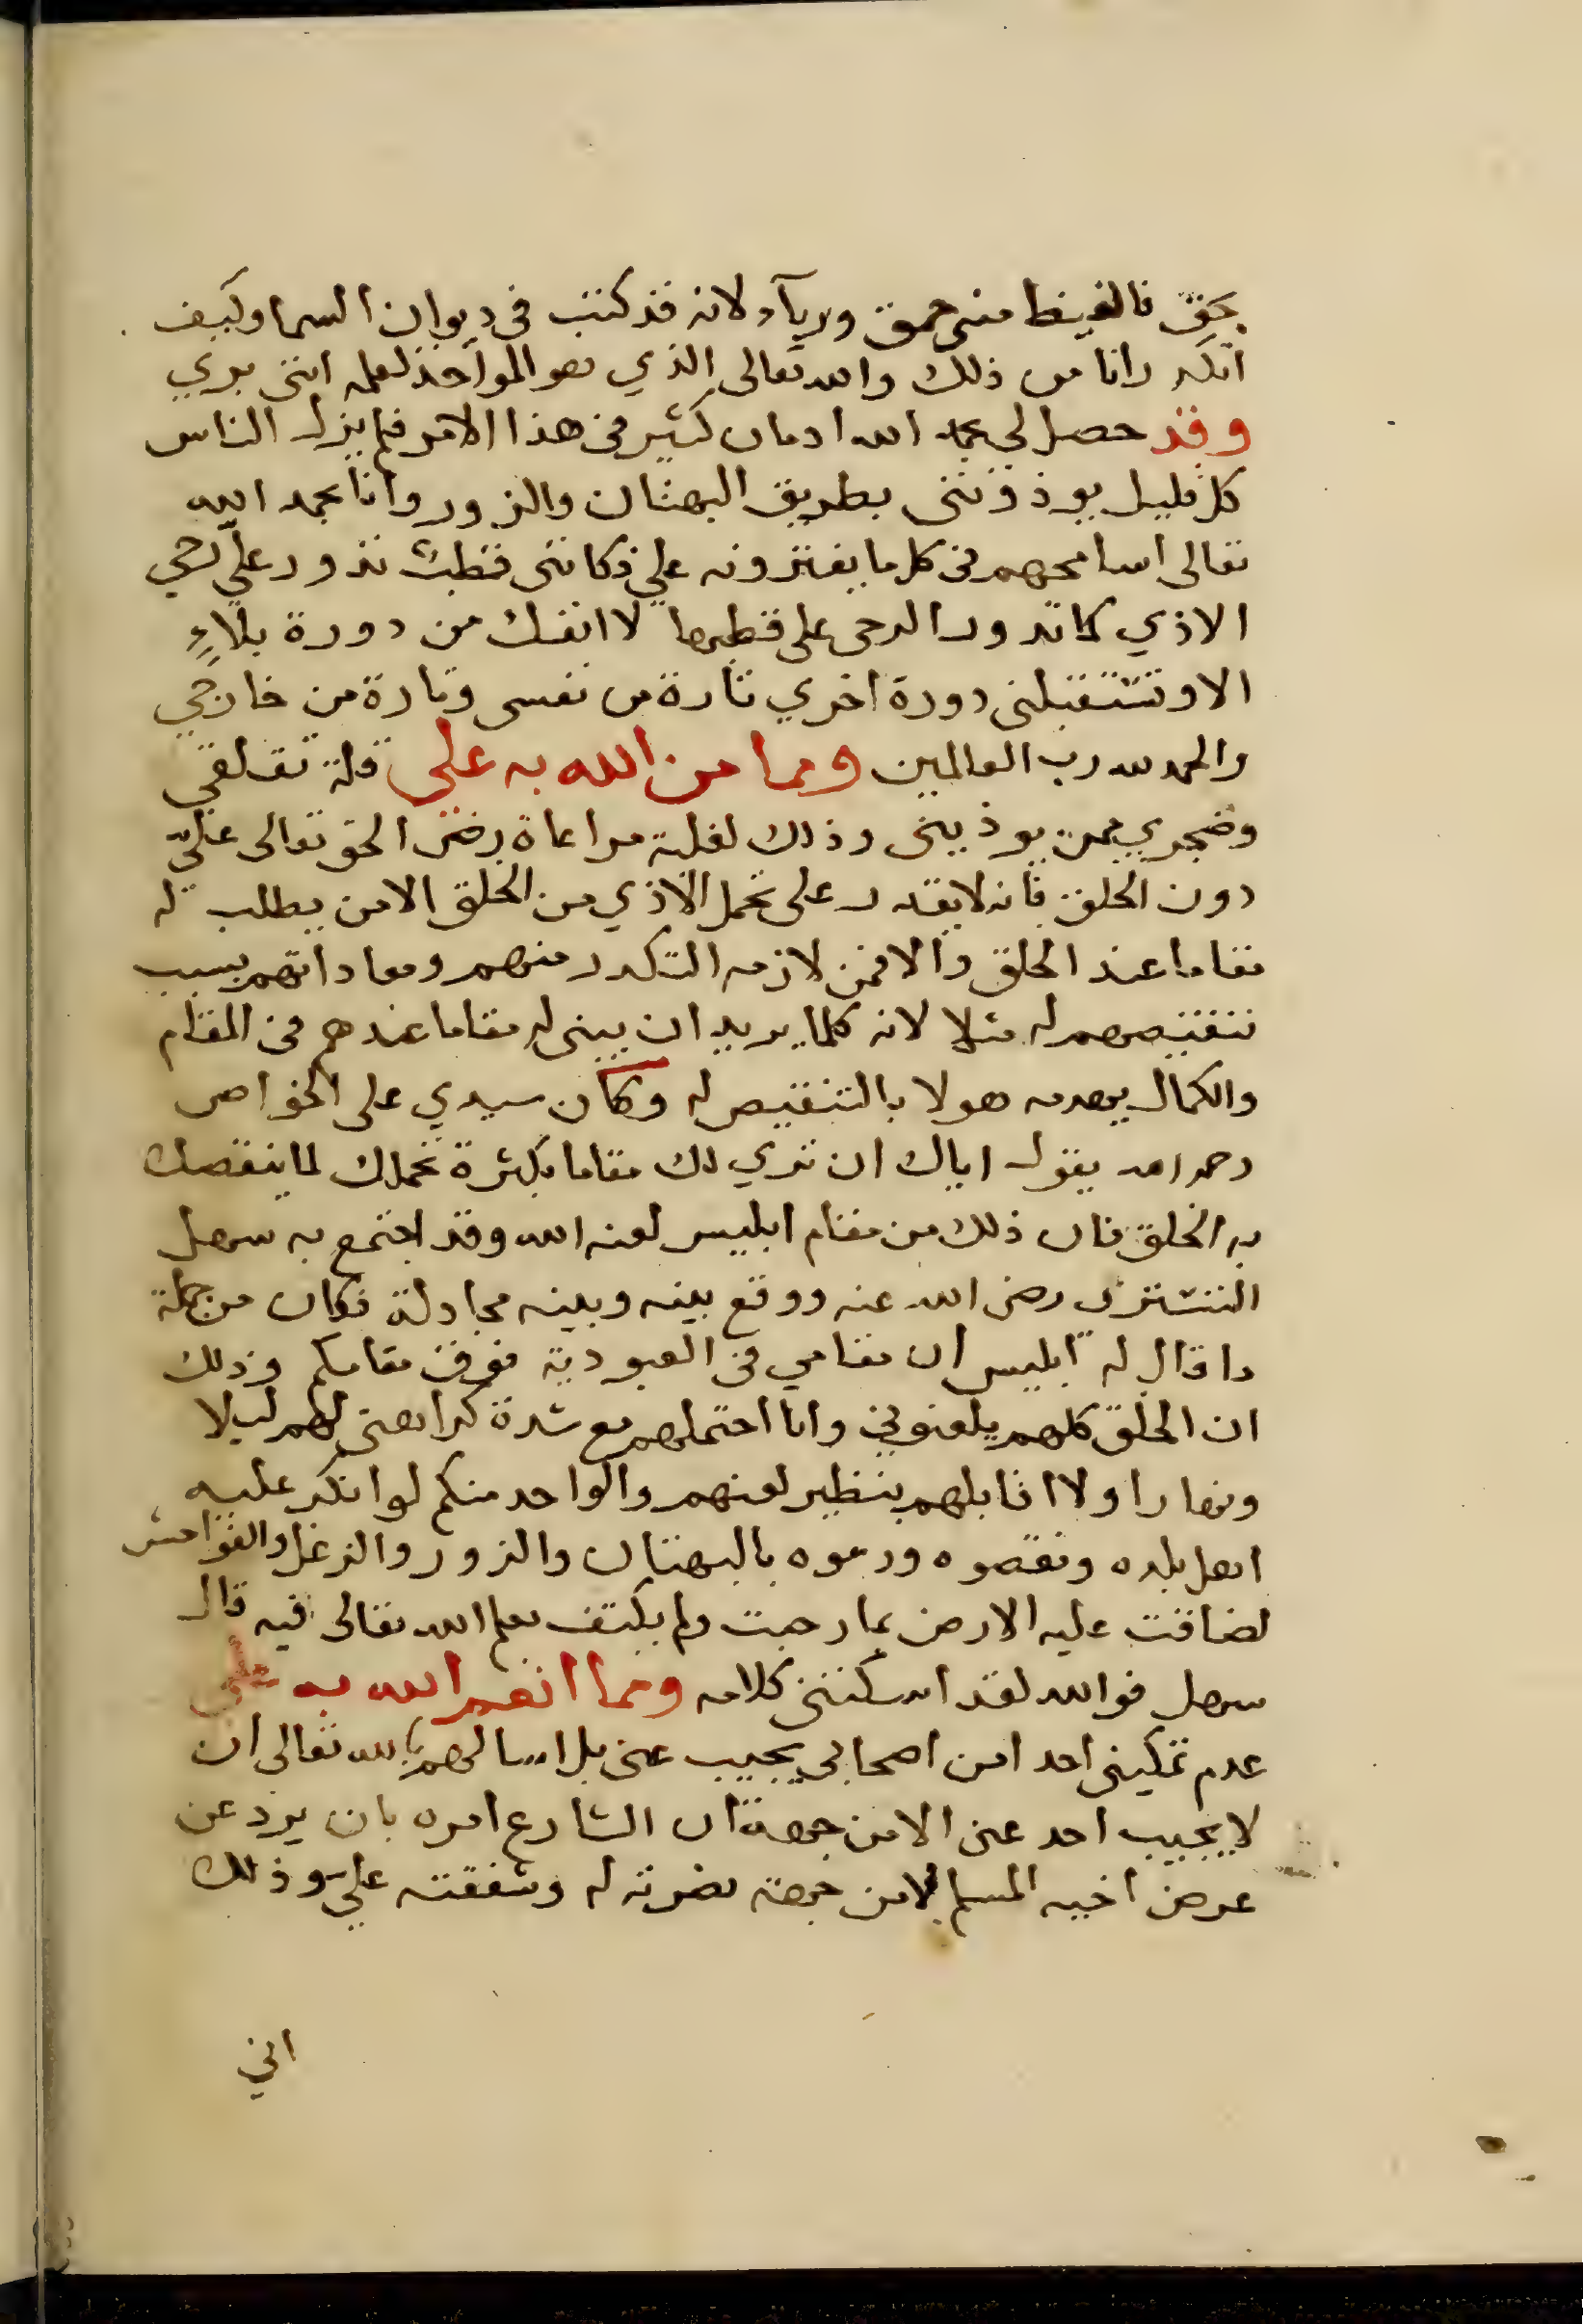 بحق فالغيظ مني حمق ورياء لانه قد كتب في ديوان السما وكيف
اتكدر انا من ذلك والله تعالى الذي هو المواخذ لعلمه انني بري
وقد حصل لي بحمد الله ادمان كثير في هذا الامر فلم يزل الناس
كل قليل يوذونني بطريق البهتان والزور وانا بحمد الله
تعالى اسامحهم في كل ما يفترونه علي فكانني قطب تدور علي رحي
الاذي كما تدور الرحى على قطبها لا انفك من دورة بلاء
الا وتستقبلني دورة اخري تارة من نفسي وتارة من خارجي
والحمد لله رب العالمين ومما من الله به علي قلة تقلقي
وضجري ممن يوذيني وذلك لغلبة مراعاة رضى الحق تعالى علي
دون الخلق فانه لا يقدر على تحمل الاذي من الخلق الا من يطلب له
مقاما عند الخلق والا فمن لازمه التكدر منهم ومعاداتهم بسبب
تنقيصهم له مثلا لانه كلما يريد ان يبني له مقاما عندهم في المقام
والكمال يهدمه هولا بالتنقيص له وكان سيدي على الخواص
رحمه الله يقول اياك ان تري لك مقاما بكثرة تحملك لما ينقصك
به الخلق فان ذلك من مقام ابليس لعنه الله وقد اجتمع به سهل
التستري رضى الله عنه ووقع بينه وبينه مجادلة فكان من جملة
ما قال له ابليس ان مقامي في العبودية فوق مقامكم وذلك
ان الخلق كلهم يلعنوني وانا احتملهم مع شدة كراهتي لهم ليلا
ونهارا ولا اقابلهم بنظير لعنهم والواحد منكم لو انكر عليه
اهل بلده ونقصوه ورموه بالبهتان والزور والزغل والفواحش
لضاقت عليه الارض بما رحبت ولم يكتف بعلم الله تعالى فيه قال
سهل فوالله لقد اسكتني كلامه ومما انعم الله به علي
عدم تمكيني احد امن اصحابي يجيب عني بل اسالهم بالله تعالى ان
لا يجيب احد عني الا من جهة ان الشارع امره بان يرد عن
عرض اخيه المسلم لا من جهة نصرته له وشفقته علي وذلك
اني